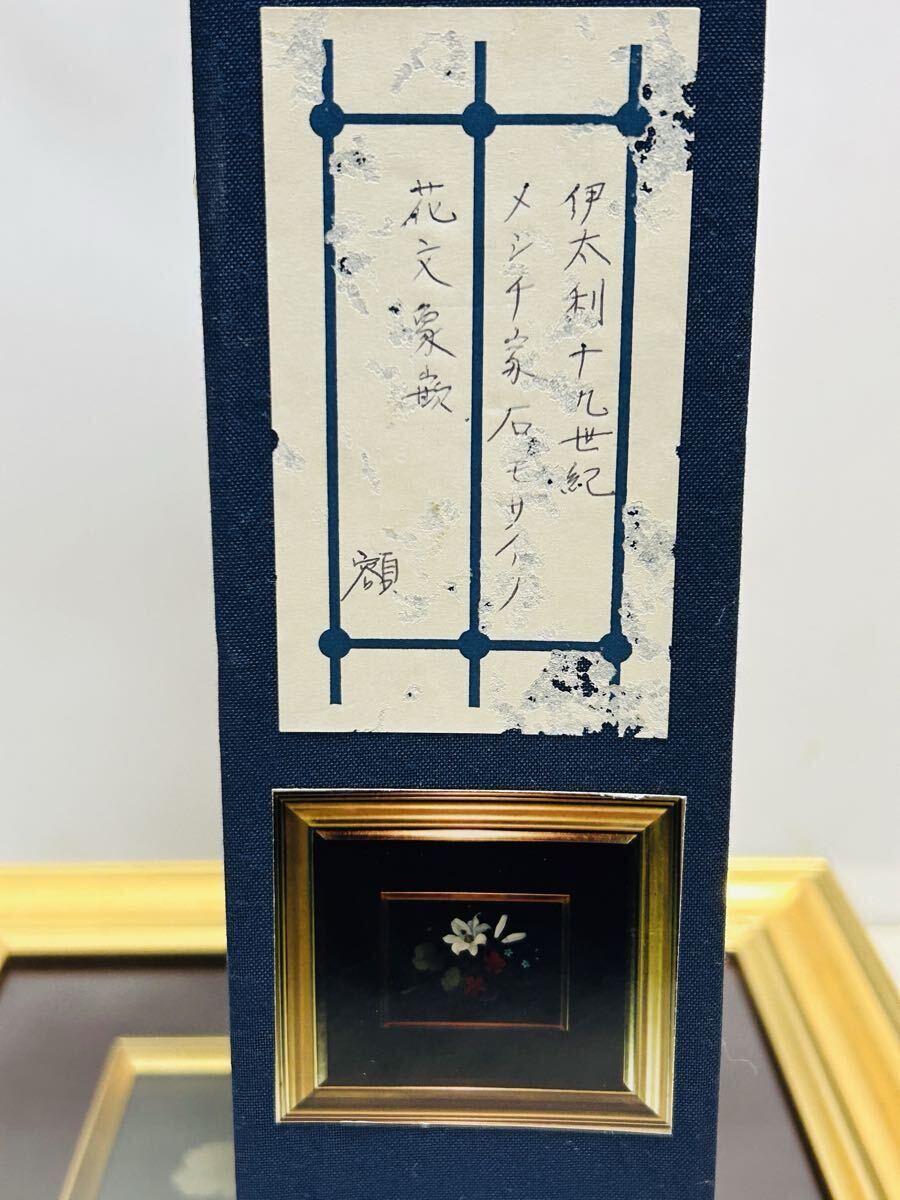 伊太利十九世紀
メジチ家石モザイク
花文象嵌
額